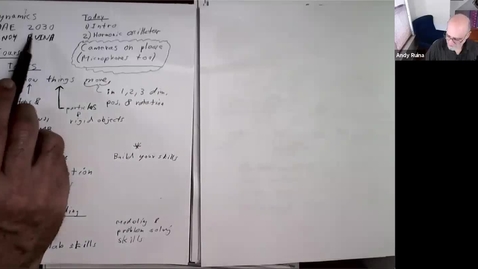 ynamics
AE 2030
NDY RUINA
Cours
Today
1) Intro
2) Harmonic oscillator
Cameras on please
(Microphones too)
ow things move
in 1, 2, 3 dim.
pos. & rotation
particles
&
rigid objects
*
Build your skills
tion
modeling &
problem solving
skills
skills
Andy Ruina